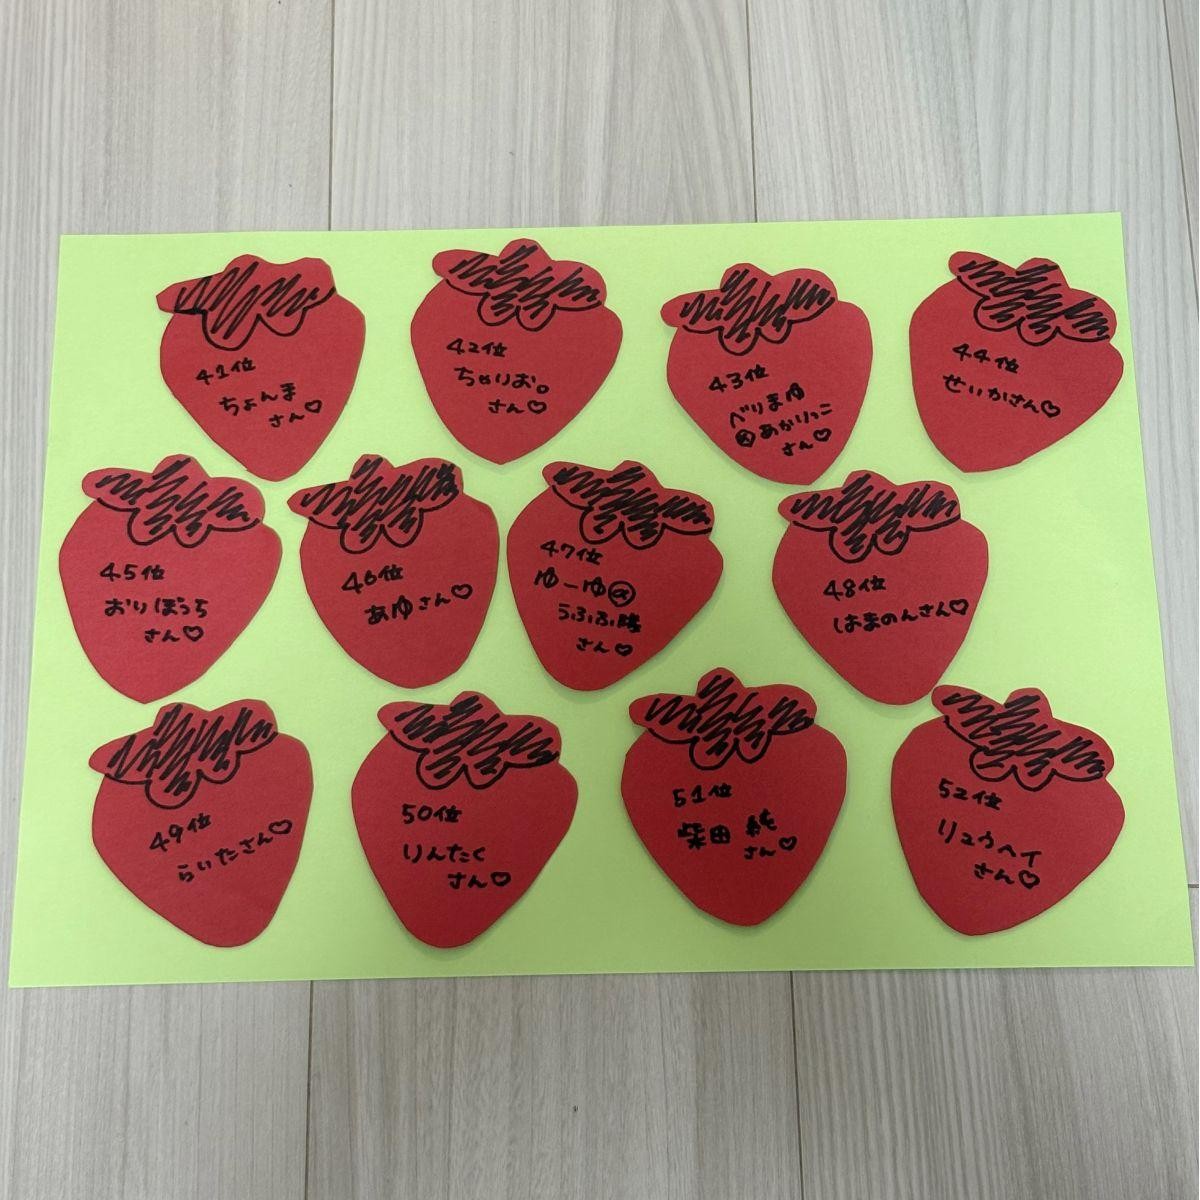 41位
ちょんま
さん♡
42位
ちゃりお。
さん♡
43位
べりまゆ
あかりっこ
さん♡
44位
せいかさん♡
45位
おりぼっち
さん♡
46位
あゆさん♡
47位
ゆーゆ@
うふふ隊
さん♡
48位
はまのんさん♡
49位
らいたさん♡
50位
りんたく
さん♡
51位
柴田 純
さん♡
52位
リュウヘイ
さん♡